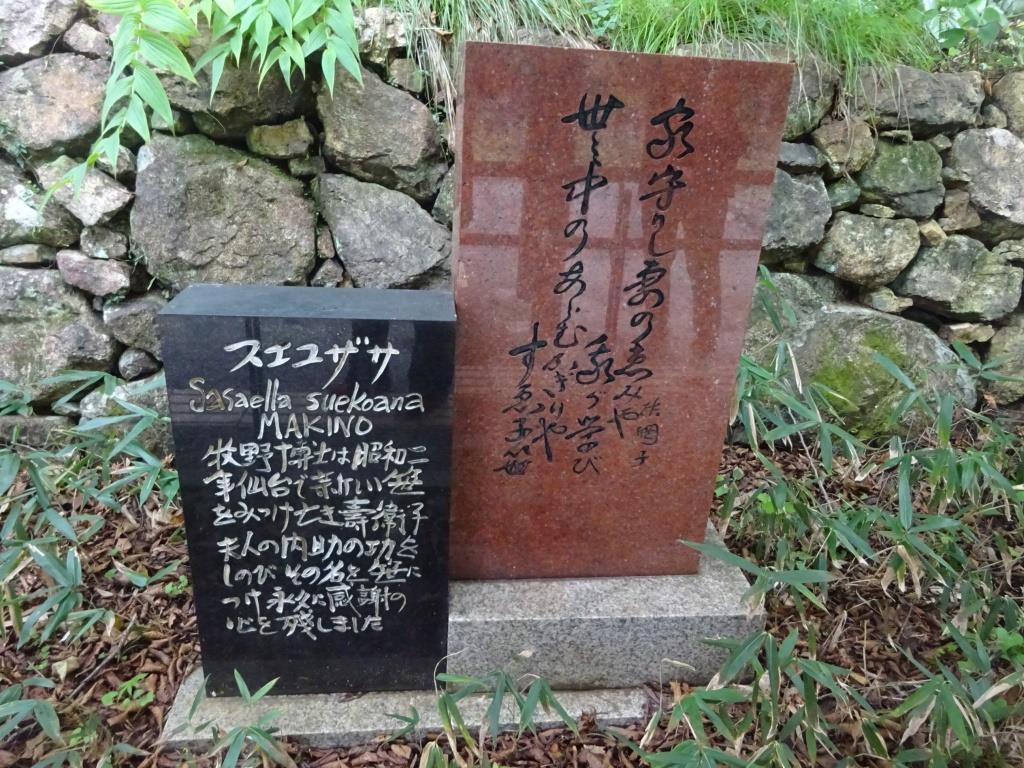 家守りし妻の恵みや
我が学び
世の中のあらむかぎりや
すゑ子笹
スエコザサ
Sasaella suekoana
MAKINO
牧野博士は昭和二
年仙台で しい笹
をみつけ亡き壽衛子
夫人の内助の功を
しのび その名を笹に
つけ永久に感謝の
心を殘しました